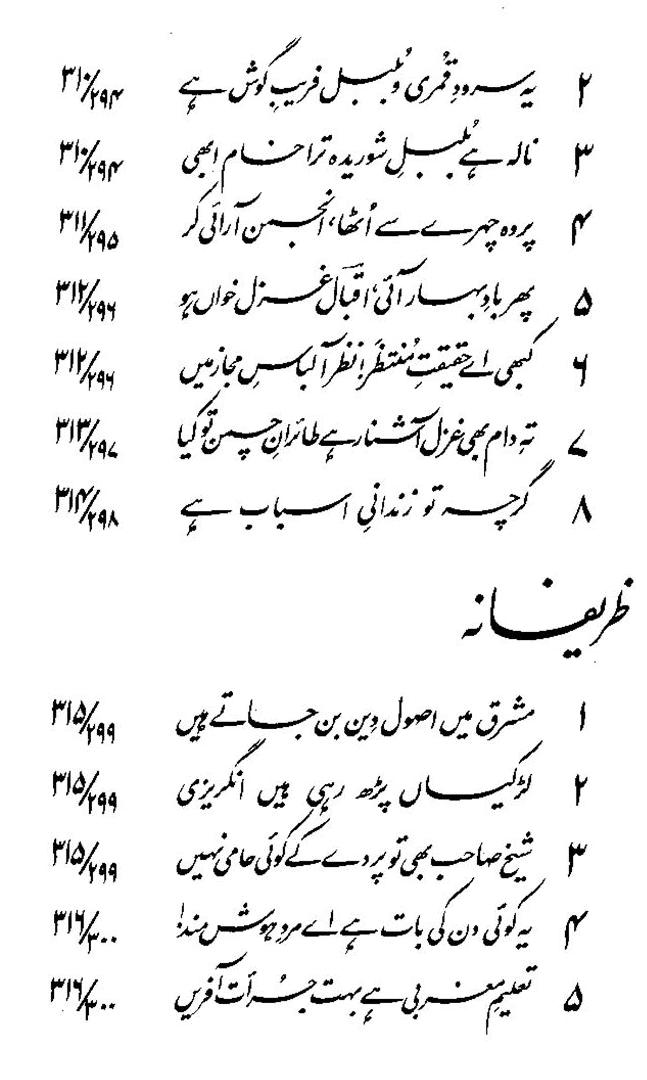 ۲ یہ سرودِ قُمری و بُلبل فریبِ گوش ہے ۳۱۰/۲۹۴
۳ نالہ ہے بُلبلِ شوریدہ ترا خام ابھی ۳۱۰/۲۹۴
۴ پردہ چہرے سے اُٹھا، انجمن آرائی کر ۳۱۱/۲۹۵
۵ پھر بادِ بہار آئی، اقبالؔ غزل خواں ہو ۳۱۲/۲۹۶
۶ کبھی اے حقیقتِ مُنتظَر! نظر آ لباسِ مجاز میں ۳۱۲/۲۹۶
۷ تہِ دام بھی غزل آشنا رہے طائرانِ چمن تو کیا ۳۱۳/۲۹۷
۸ گرچہ تو زندانیِ اسباب ہے ۳۱۴/۲۹۸
ظریفانہ
۱ مشرق میں اصول دِین بن جاتے ہیں ۳۱۵/۲۹۹
۲ لڑکیاں پڑھ رہی ہیں انگریزی ۳۱۵/۲۹۹
۳ شیخ صاحب بھی تو پردے کے کوئی حامی نہیں ۳۱۵/۲۹۹
۴ یہ کوئی دن کی بات ہے اے مردِ ہوش مند! ۳۱۶/۳۰۰
۵ تعلیمِ مغربی ہے بہت جُرأت آفریں ۳۱۶/۳۰۰